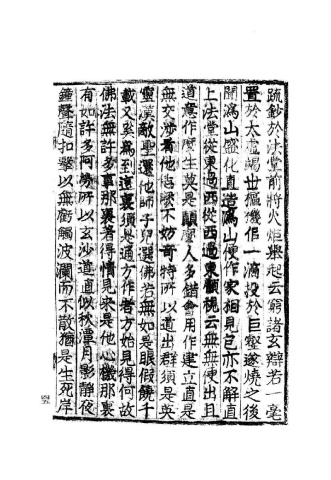 疏鈔於法堂前將火炬擧起云窮諸玄辯若一毫
置於太虛竭世樞機似一滴投於巨壑遂燒之後
聞潙山盛化直造潙山便作家相見包亦不解直
上法堂從東過西從西過東顧視云無無便出且
道意作麽生莫是顚麽人多錯會用作建立直是
無交涉看他恁麽不妨奇特所以道出群須是英
靈漢敵聖還他師子兒選佛若無如是眼假饒千
載又奚爲到這裏須是通方作者方始見得何故
佛法無許多事那裏著得情見來是他心機那裏
有如許多阿勞所以玄沙道直似秋潭月影靜夜
鐘聲隨扣擊以無虧觸波瀾而不散猶是生死岸
四五